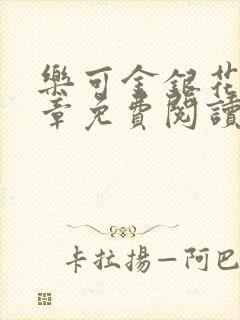 樂可金銀花
章免費閱讀
卡拉揚—阿巴